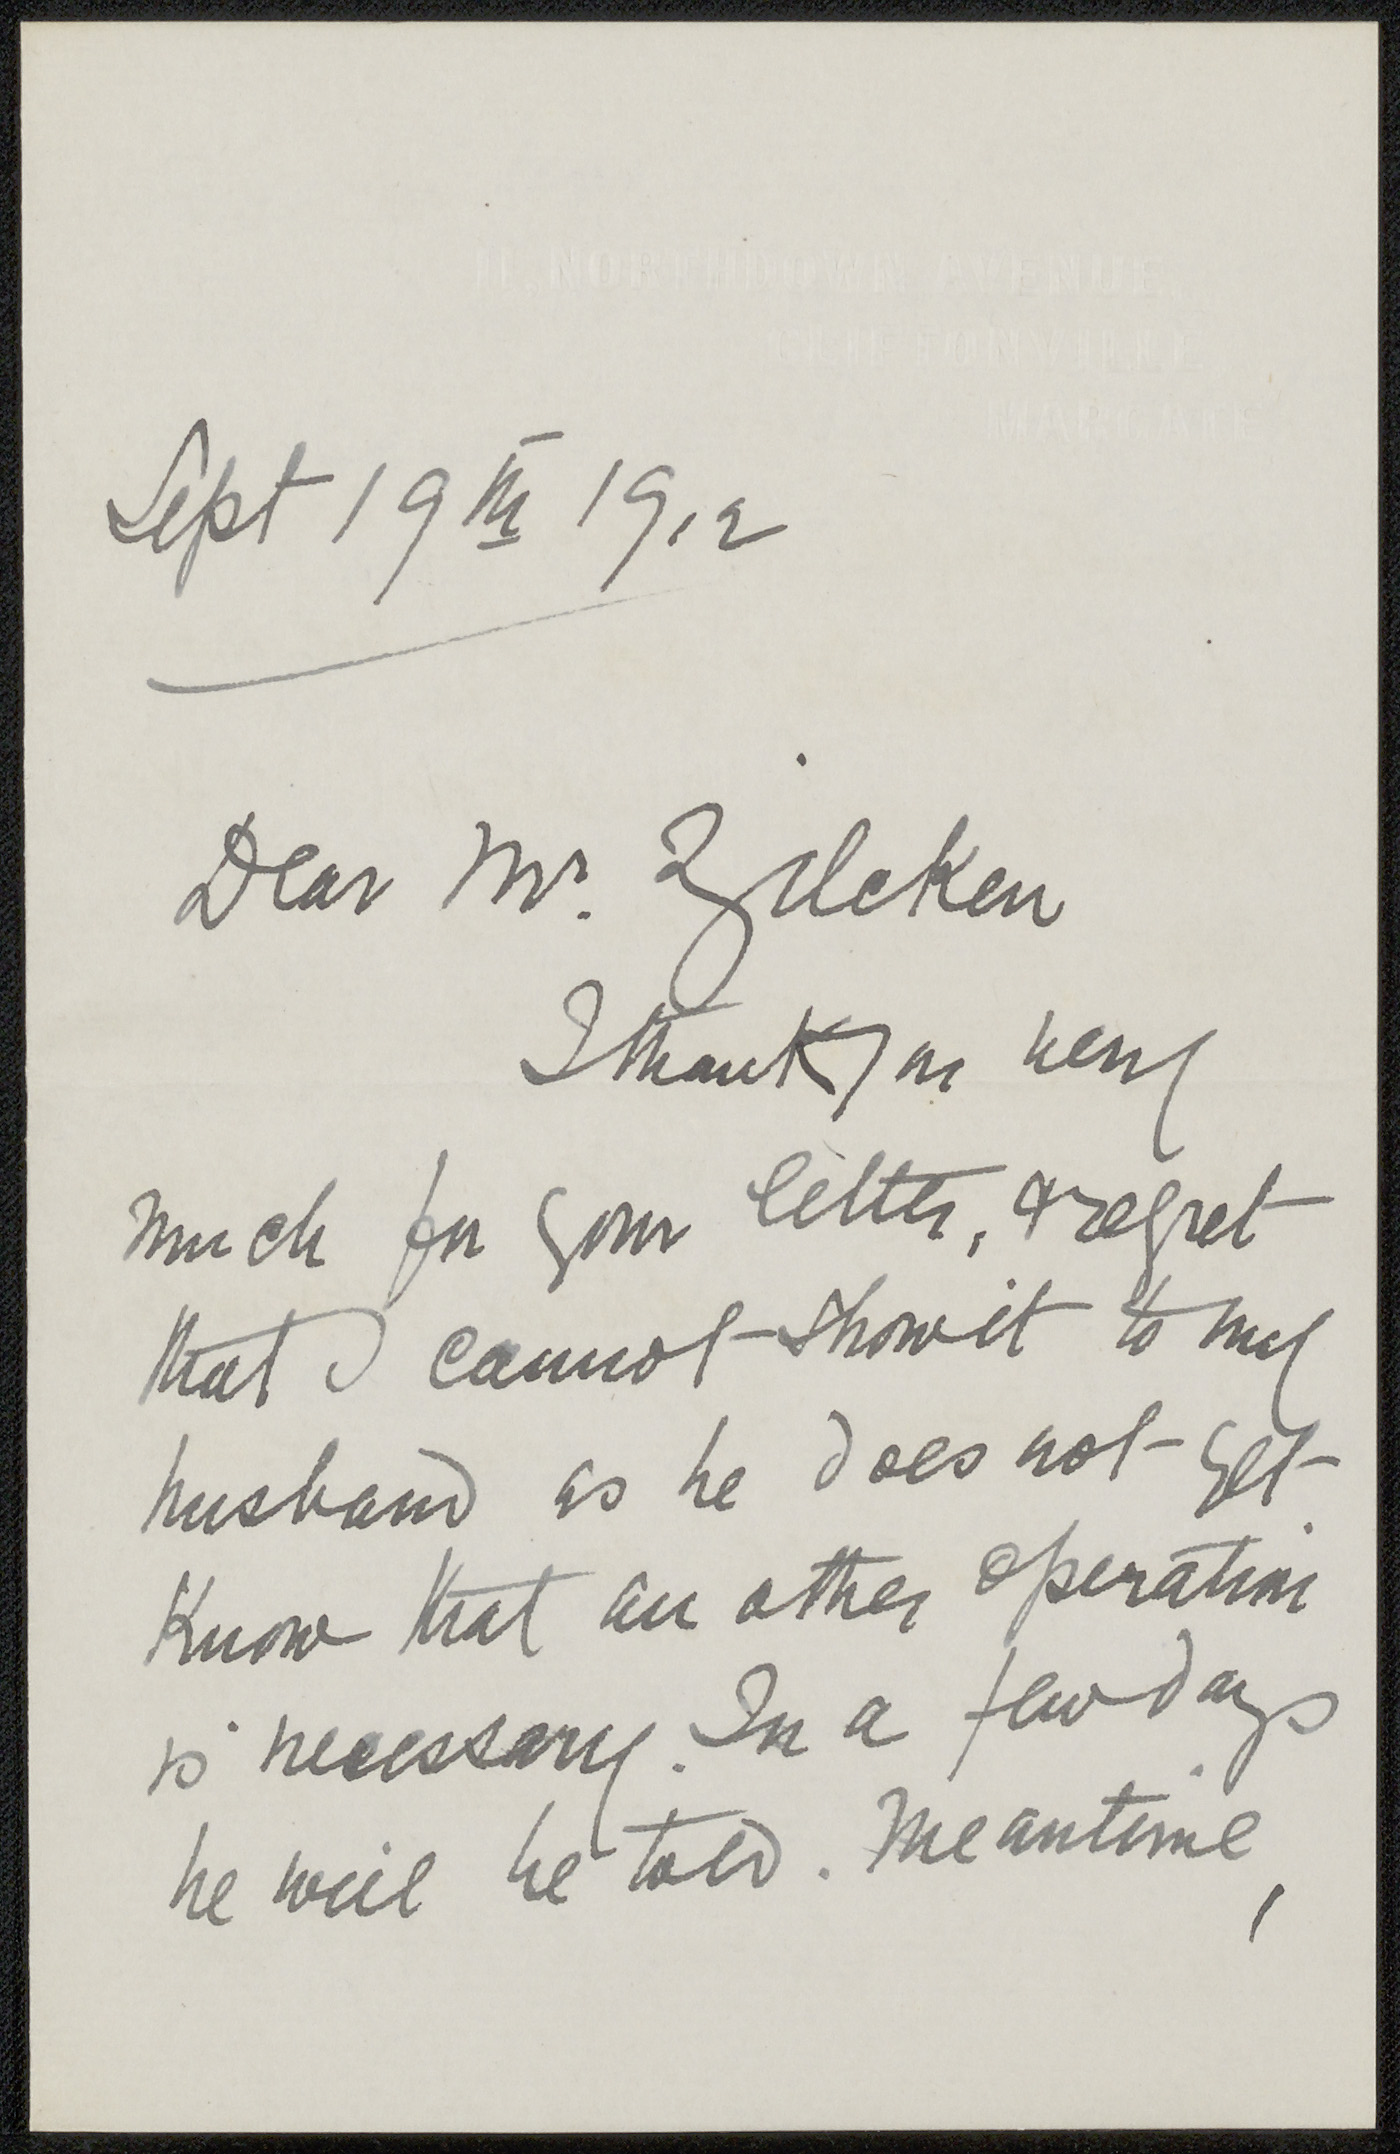 11, NORTHDOWN AVENUE,
CLIFTONVILLE,
MARGATE.
Sept 19th 1912
Dear Mr. Zilcken
I thank you very
much for your letter, & regret
that I cannot show it to my
husband as he does not yet
know that an other operation
is necessary. In a few days
he will be told. Meantime,